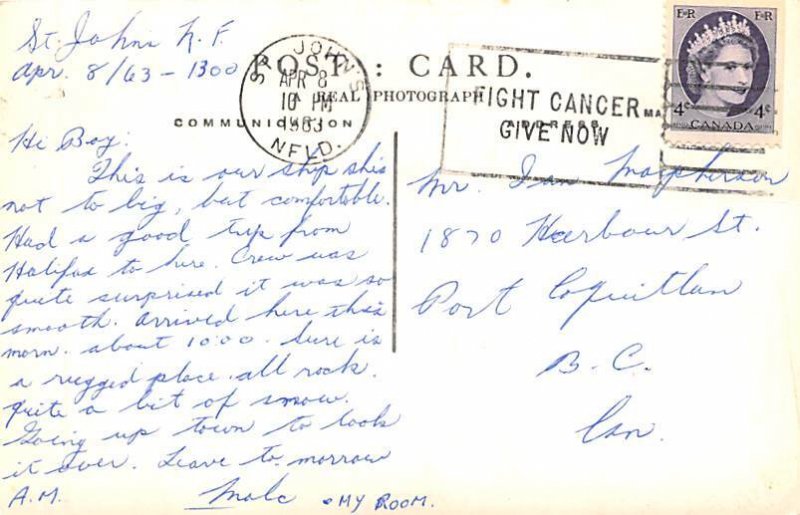 St. Johns N.F.
Apr. 8/63 - 1300
POST CARD.
REAL PHOTOGRAPH
COMMUNICATION
ADDRESS
ST. JOHN'S
APR 8
10 PM
1963
NFLD.
FIGHT CANCER
GIVE NOW
E II R
E II R
4¢
4¢
CANADA
Hi Boy:
This is our ship shis
not to big, but comfortable.
Had a good trip from
Halifax to here. Crew was
quite surprised it was so
smooth. Arrived here this
morn. about 10:00. Sure is
a rugged place. all rock.
Quite a bit of snow.
Going up town to look
it over. Leave to-morrow
A.M.
Malc
• MY ROOM.
Mr. Ian Macpherson
1870 Harbour St.
Port Coquitlam
B.C.
Can.